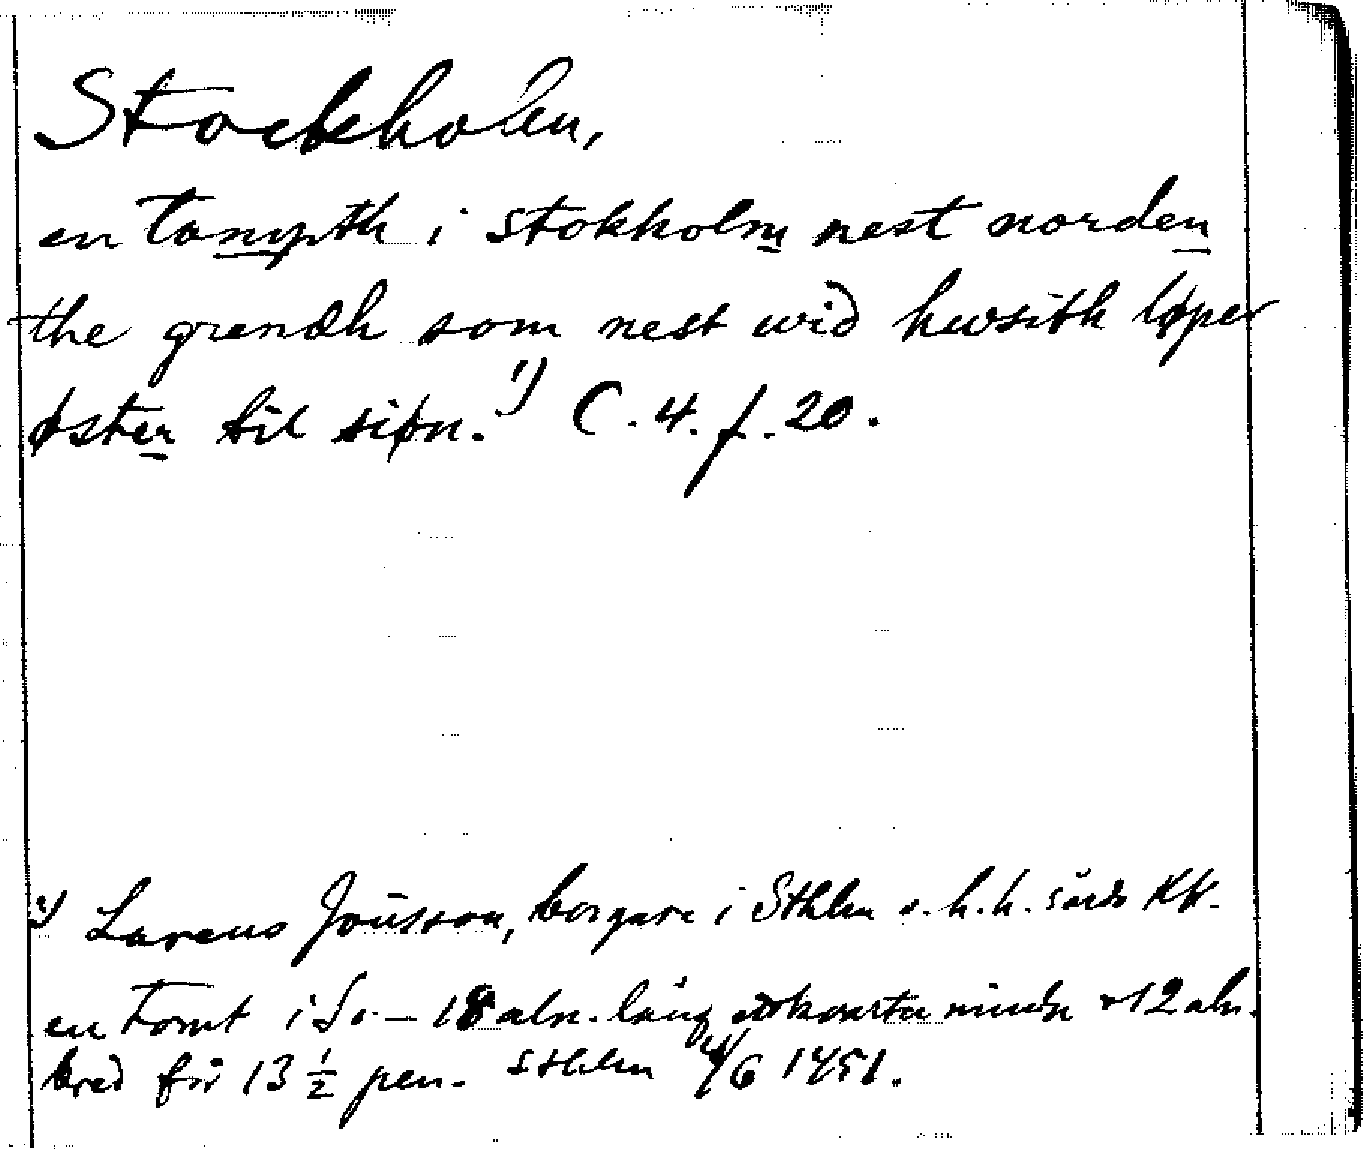 Stockholm,
en tompth i stokkholm nest norden
the grendh som nest wid hwsith løper
øster til siøn. 1) C. 4. f. 20.
1) Larens Jönsson, borgare i Sthlm o. h. h. särs KK.
en tomt i S:o – 18 aln. lång kvarter mindr 12 aln.
bred för 13 ½ pen. Sthlm 4/6 1451.